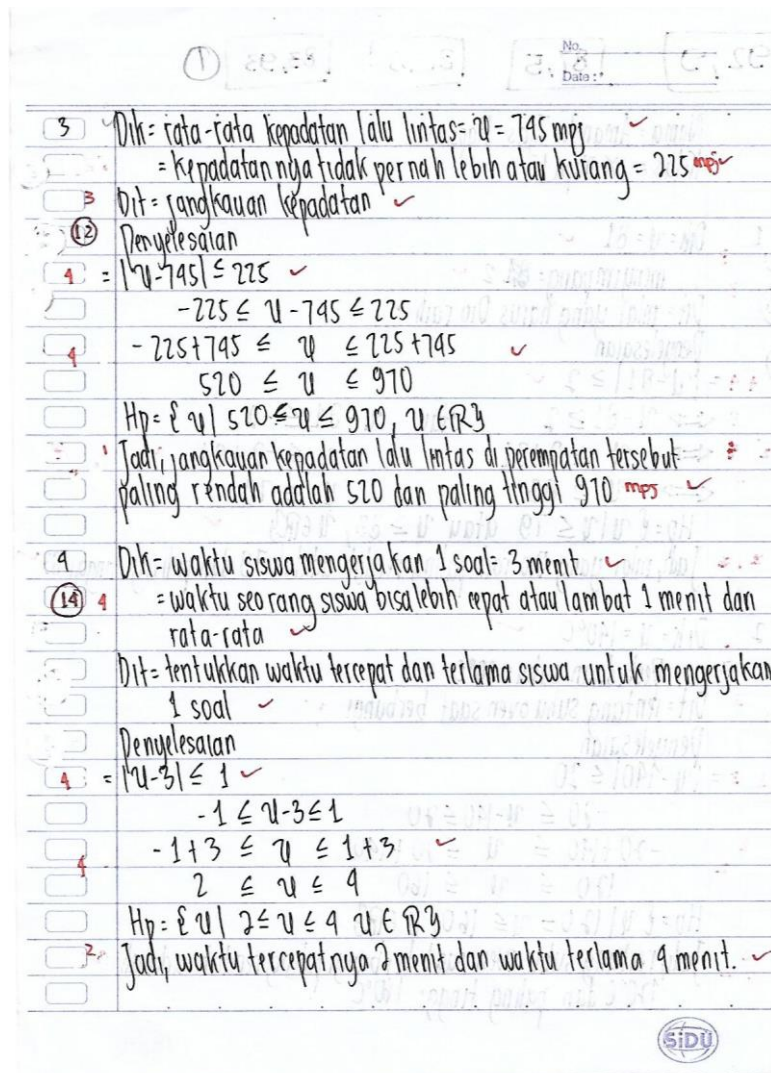 No.
Date :
1
3 Dik = rata-rata kepadatan lalu lintas = x = 745 mpj
= kepadatannya tidak pernah lebih atau kurang = 225 mpj
3 Dit = jangkauan kepadatan
12 Penyelesaian
4 = |x-745| ≤ 225
-225 ≤ x - 745 ≤ 225
4 - 225+745 ≤ x ≤ 225+745
520 ≤ x ≤ 970
Hp = { x | 520 ≤ x ≤ 970, x ∈ R }
1 Jadi, jangkauan kepadatan lalu lintas di perempatan tersebut
paling rendah adalah 520 dan paling tinggi 970 mpj
4 Dik = waktu siswa mengerjakan 1 soal = 3 menit
14 4 = waktu seorang siswa bisa lebih cepat atau lambat 1 menit dan
rata-rata
Dit = tentukkan waktu tercepat dan terlama siswa untuk mengerjakan
1 soal
Penyelesaian
4 = |x-3| ≤ 1
-1 ≤ x-3 ≤ 1
4 -1+3 ≤ x ≤ 1+3
2 ≤ x ≤ 4
Hp = { x | 2 ≤ x ≤ 4 x ∈ R }
2 Jadi, waktu tercepatnya 2 menit dan waktu terlama 4 menit.
SiDU